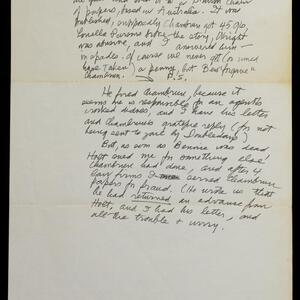 of papers, based in Australia. I was
published, supposedly Chambrun got 45,000,
Louella Parsons broke the story, Wright
was abusive, and I answered him —
of course we never got (or would
have taken) a penny, but Ben "forgave"
Chambrun.
B.S.
He fired Chambrun, because it
seems he is responsible for an agent's
crooked deals, and I have his letter
and Chambrun's grateful reply (for not
being sent to jail by Doubleday)
But, as soon as Bennie was dead
Holt sued me for something else!
Chambrun had done, and after 4
law firms I served Chambrun
papers for fraud. (He wrote us that
he had returned an advance from
Holt, and I had his letter, and
all the trouble & worry.